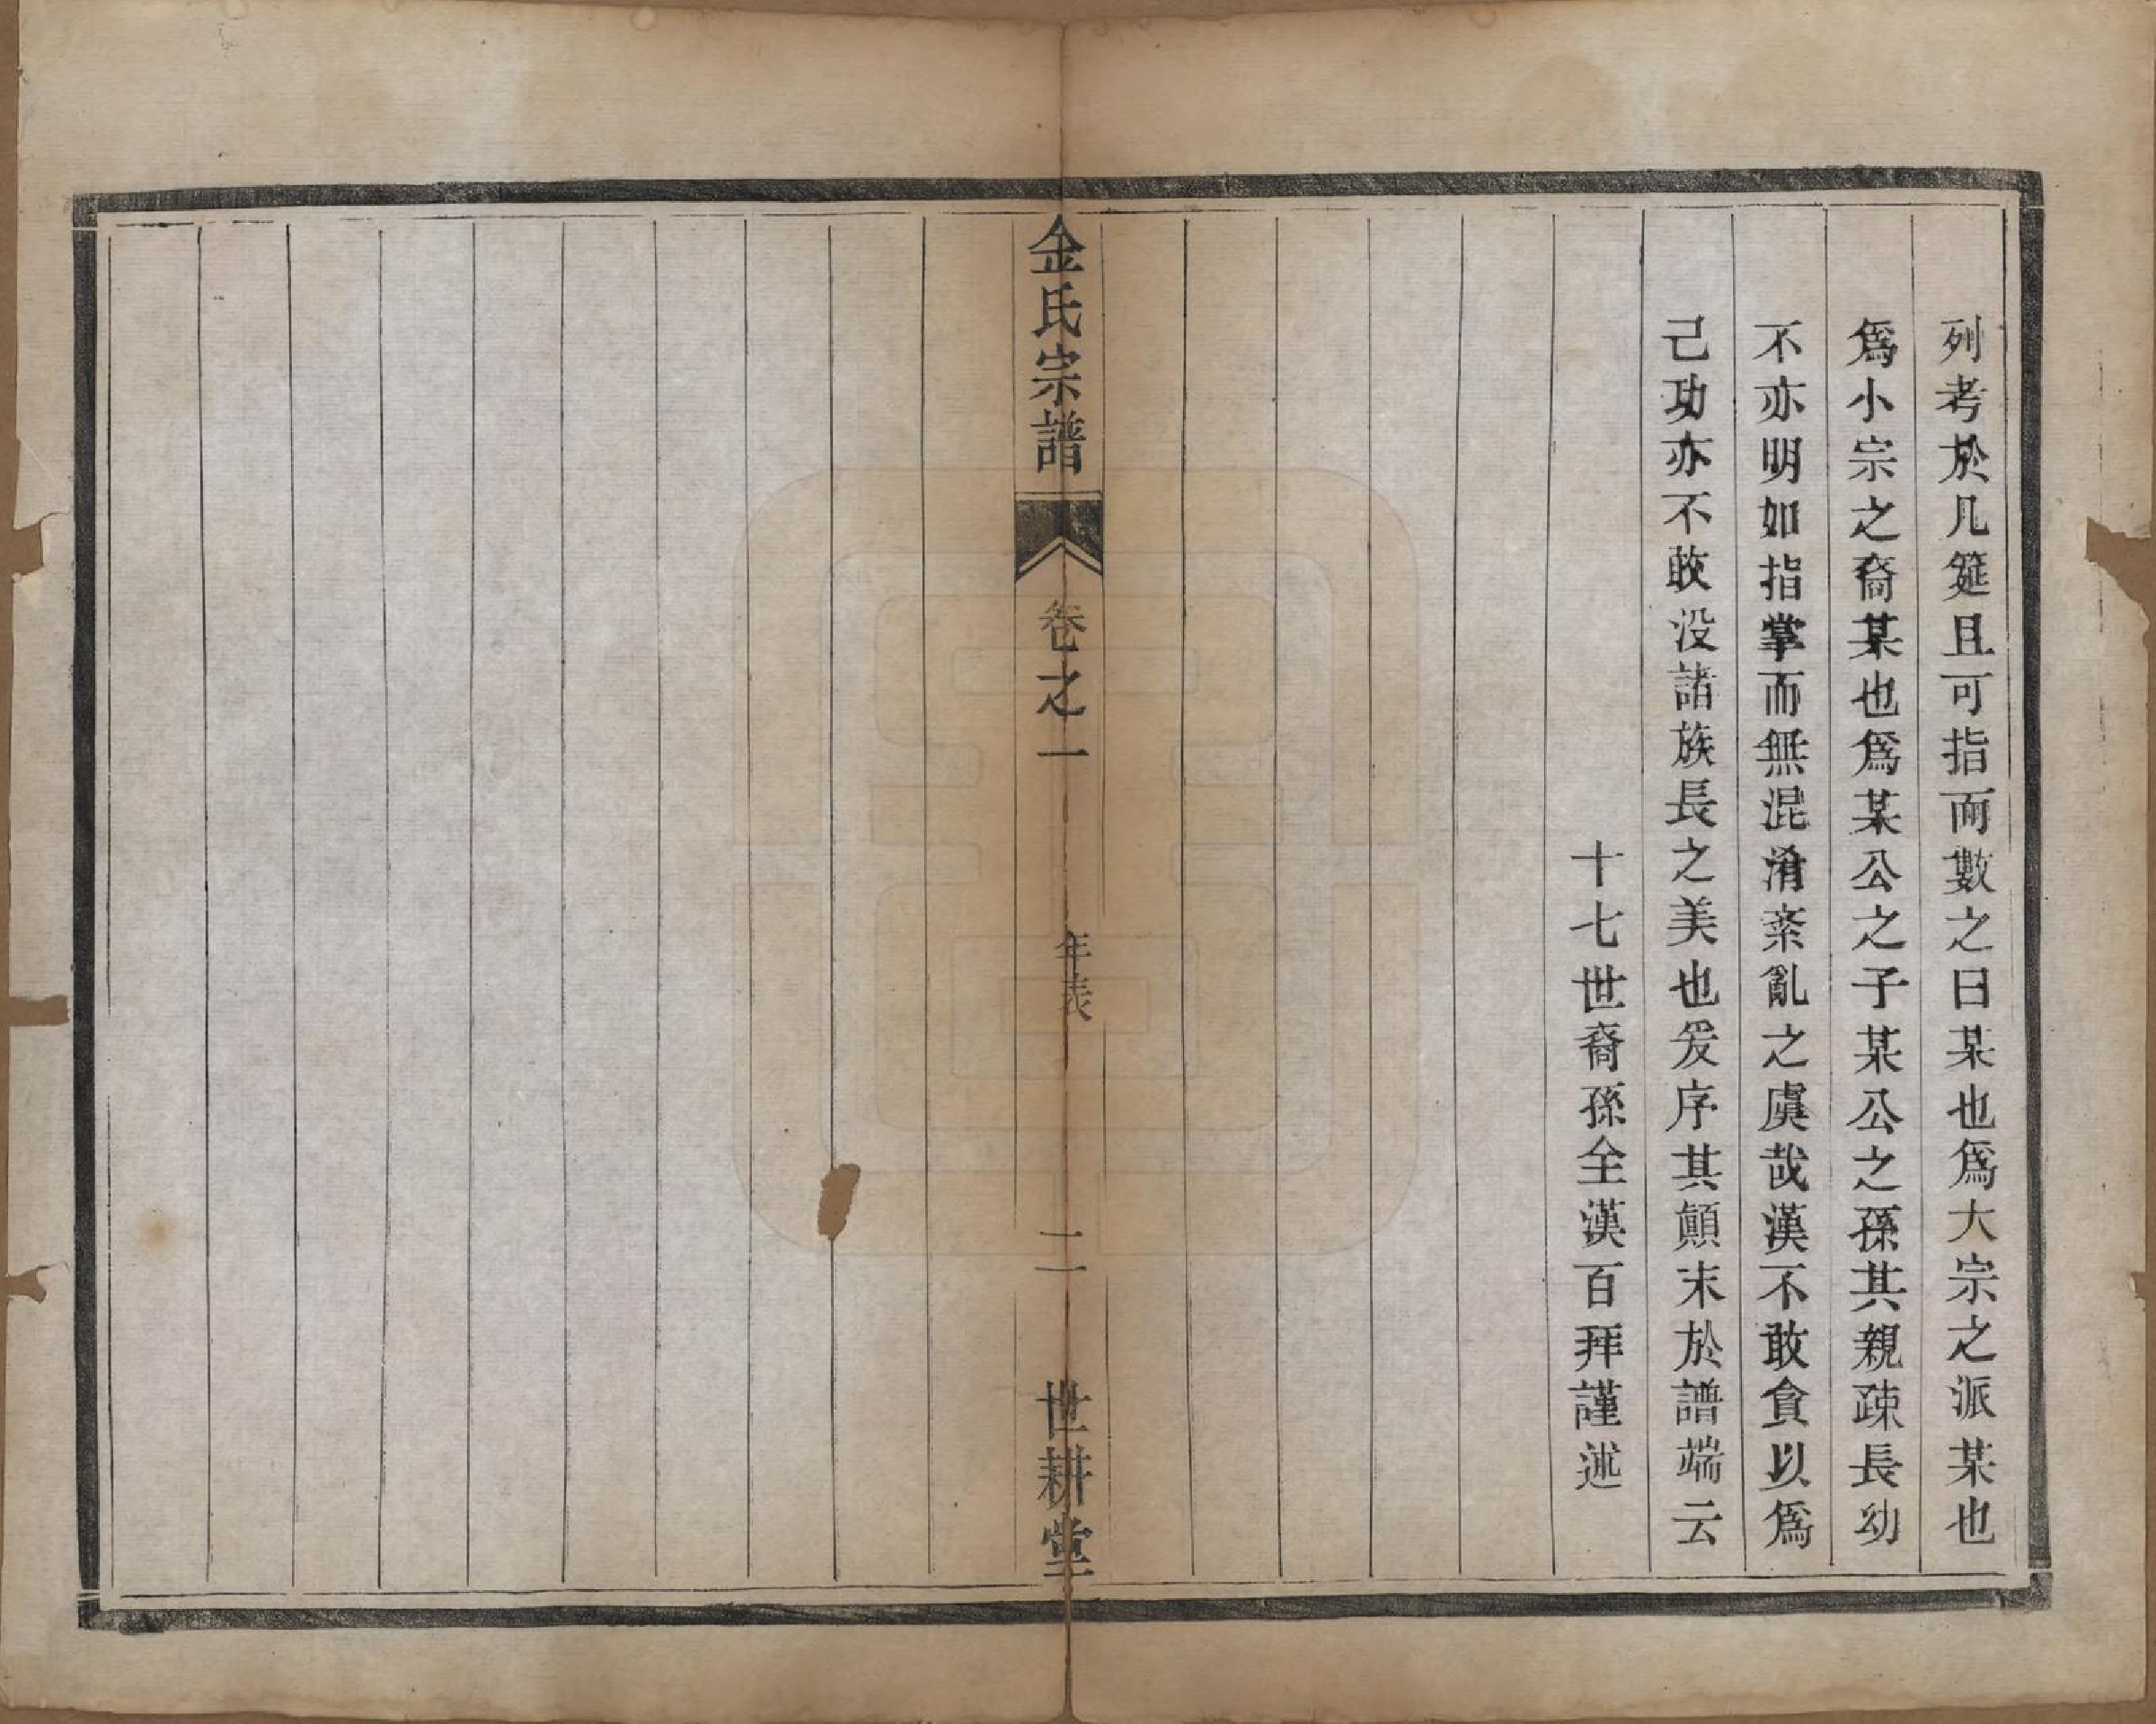 列考於几筵且可指而數之曰某也爲大宗之派某也
爲小宗之裔某也爲某公之子某公之孫其親疎長幼
不亦明如指掌而無混淆紊亂之虞哉漢不敢貪以爲
己功亦不敢没諸族長之美也爰序其顛末於譜端云
十七世裔孫全漢百拜謹述
金氏宗譜 卷之一 年表 二 世耕堂